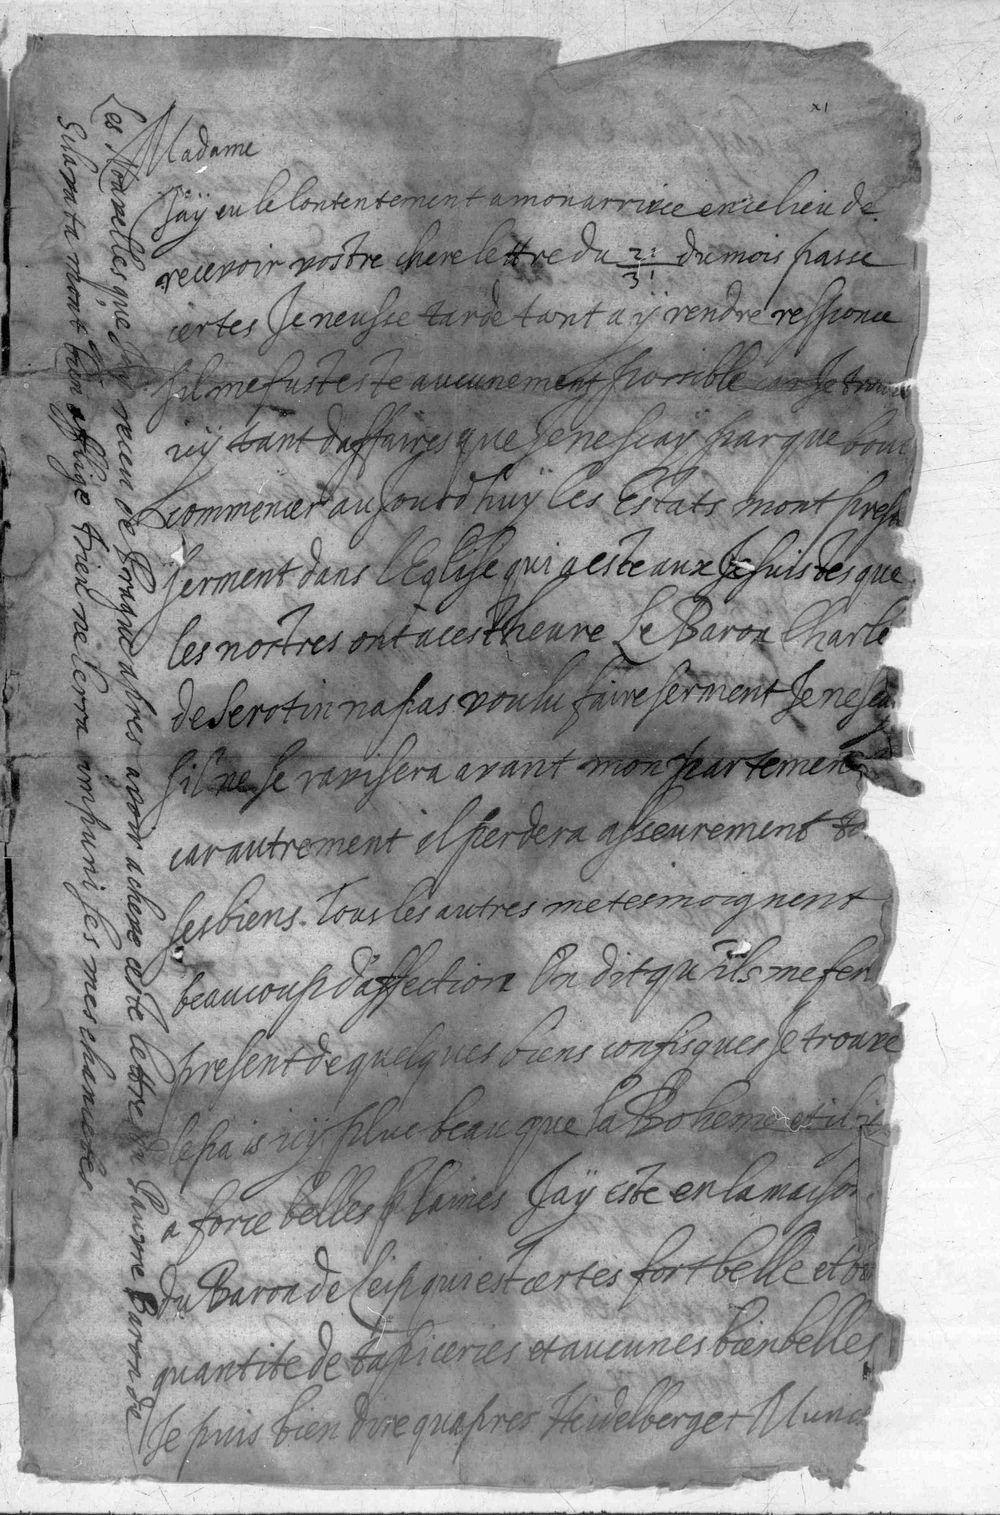 Madame
Jaÿ eu le Contentement a mon arrivee en ce lieu de
recevoir vostre chere lettre du 21/31 du mois passe
certes Je neusse tarde tant a ÿ rendre responce
sil me fust este aucunement possible car Je trouve
icÿ tant daffaires que Je ne scaÿ par que bout
commencer aujourdhuÿ les Estats mont preste
serment dans lEglise qui a este aux Jesuistes que
les nostres ont a cest heure Le Baron Charle
de Serotin na pas voulu faire serment Je ne scai
sil ne se ravisera avant mon partement
car autrement il perdera asseurement to
ses biens. Tous les autres me tesmoignent
beaucoup daffection On dit quils me fer
present de quelques biens confisques Je trouve
le pais icÿ plus beau que la Boheme et il ÿ
a force belles plaines Jaÿ este en la maison
du Baron de Leip qui est certes fort belle et
quantite de tapiceries et aucunes bien belles
Je puis bien dire quapres Heidelberg et Munc
Les Nouvelles que Jaÿ receu de Prague apres avoir acheve ceste lettre du Pauvre Baron de
mont bien afflige Dieu ne lerra impuni ses meschancetes